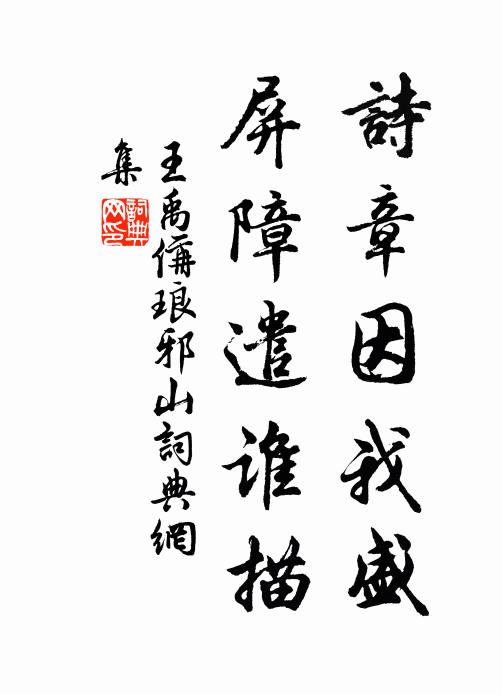 詩章因我盛
屏障遣誰描
王禹偁琅邪山詞典網
集
詞典网印